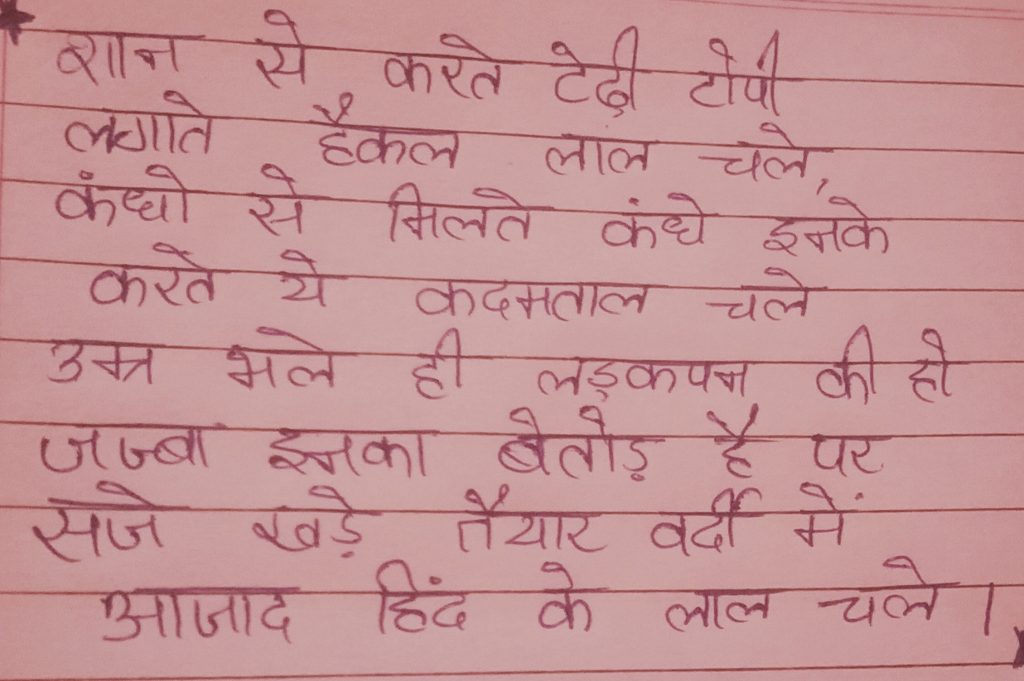 शान से करते टेढ़ी टोपी
लगाते हैकल लाल चले,
कंधो से मिलते कंधे इनके
करते ये कदमताल चले
उम्र भले ही लड़कपन की हो
जज्बा इनका बेतोड़ है पर
सजे खड़े तैयार वर्दी में
आजाद हिंद के लाल चले।